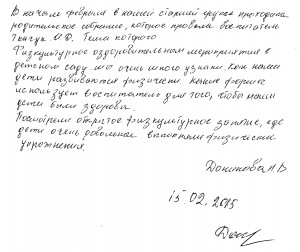 В начале февраля в нашей старшей группе проходило
родительское собрание, которое провела воспитатель
И.Ф. Тема которого
Физкультурное оздоровительном мероприятия в
детском саду мы очень много узнали. Как наши
дети развиваются физически. Какие формы
использует воспитатель для того, чтобы наши
дети были здоровы.
Посмотрели открытое физкультурное занятие, где
дети очень довольные выполняли физические
упражнения.
15.02.2015